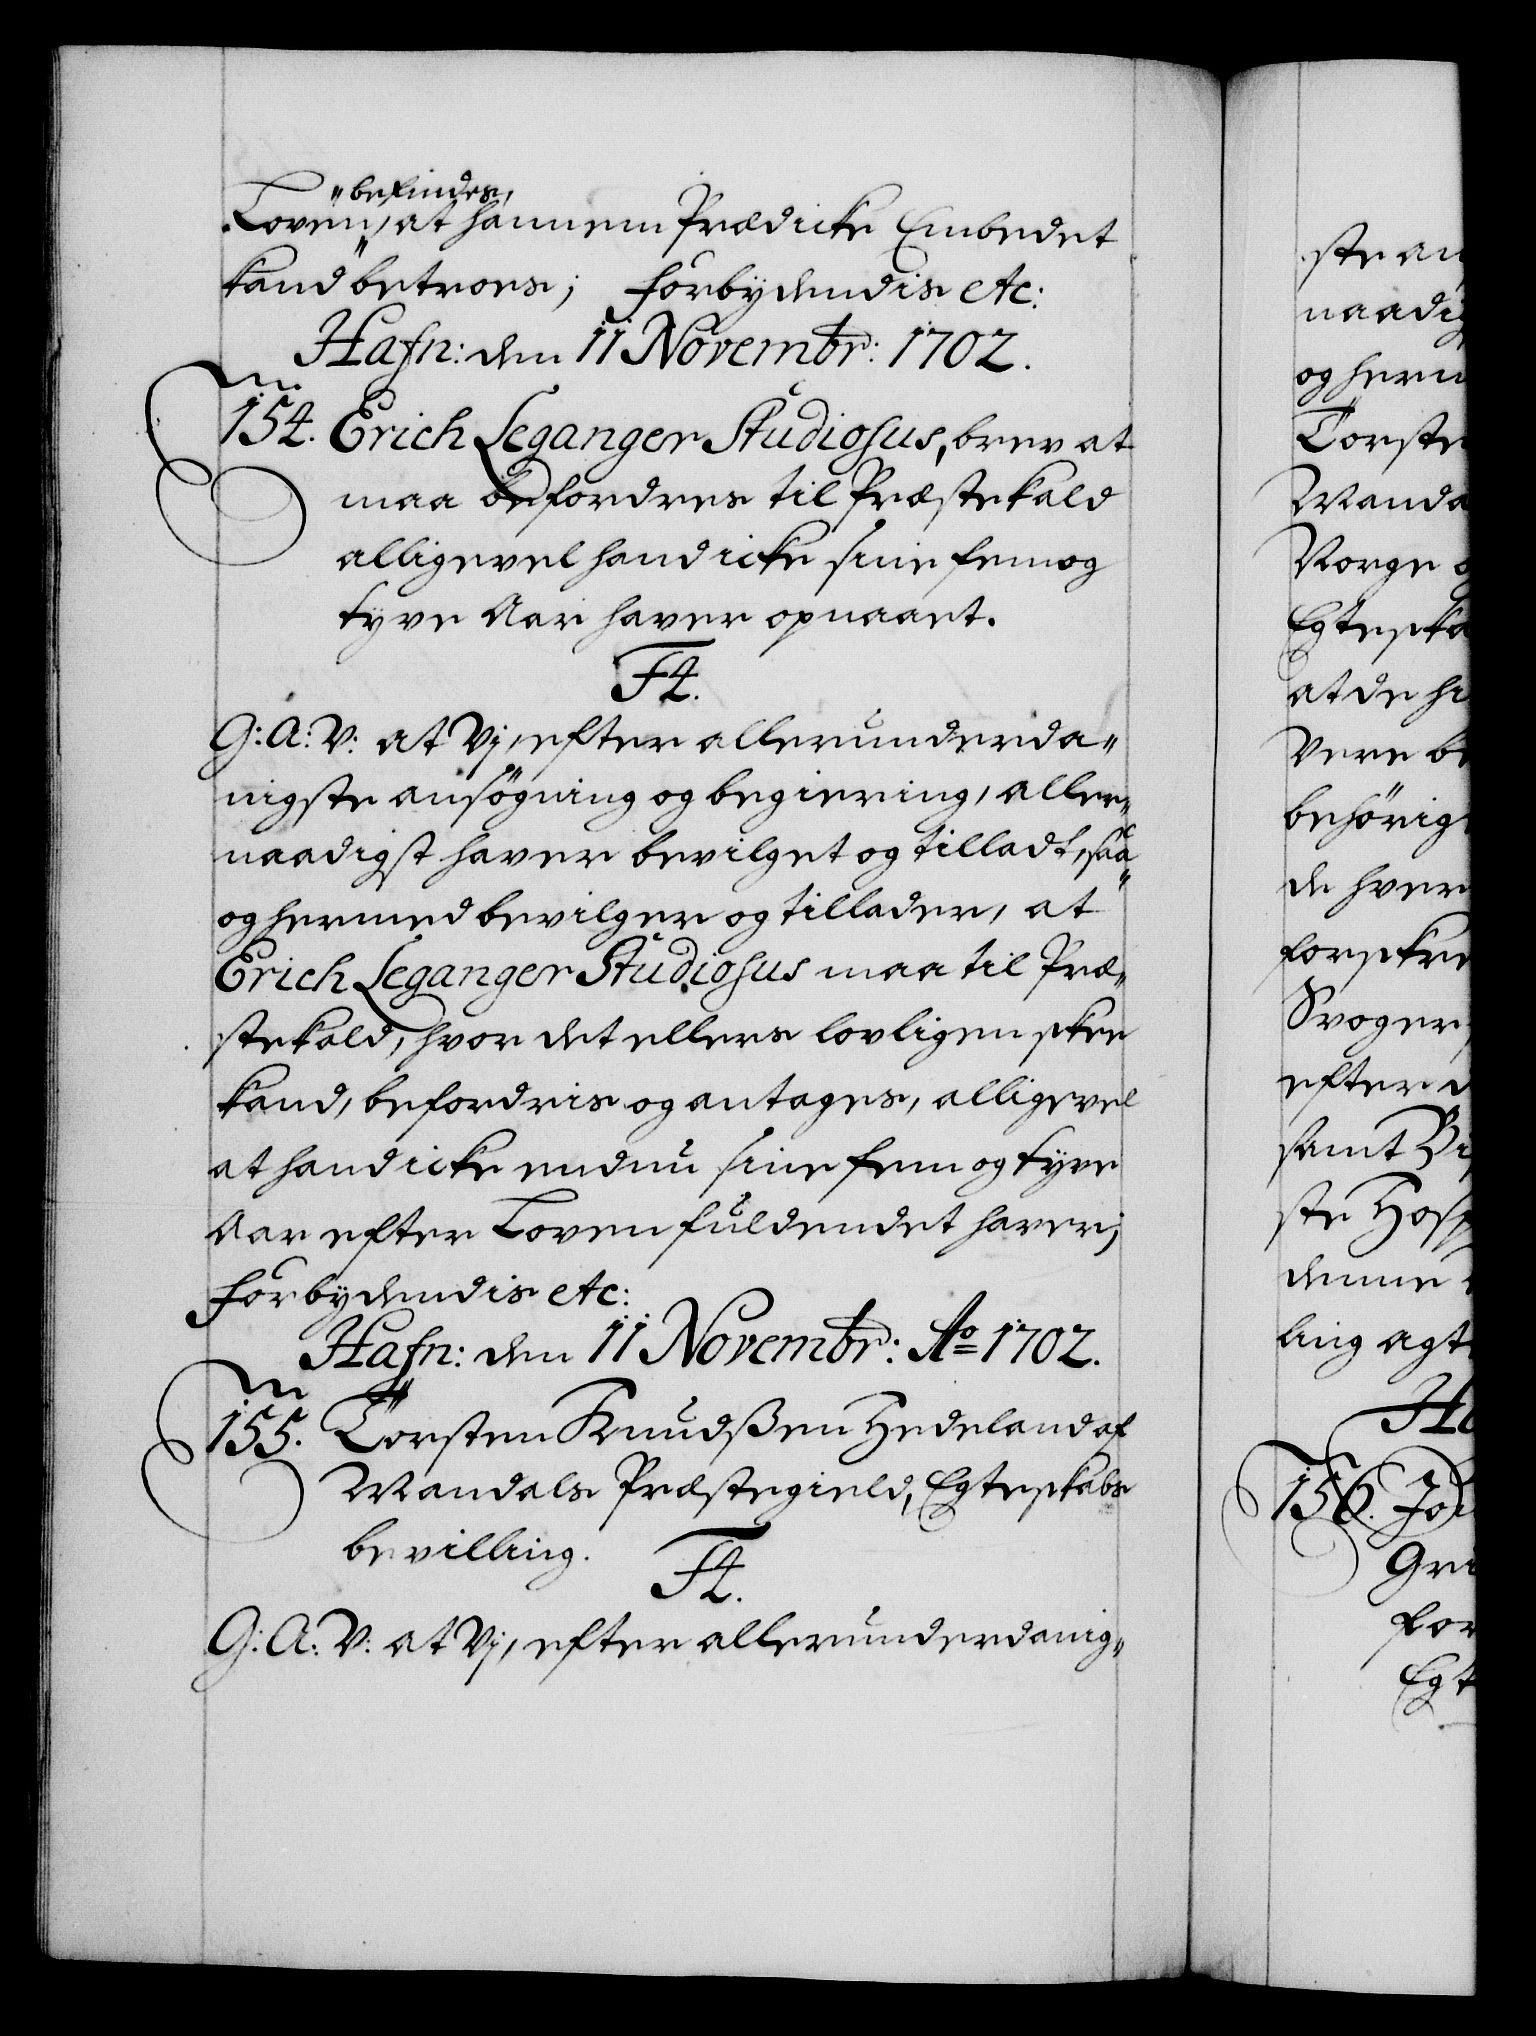 " befindes,
Loven, at hannem Prædicke Embedet
kand betroes; forbydendis etc:
Hafn: den 11 Novembr: 1702.
154. Erich Leganger Studiosus, brev at
maa befordres til Præstekald
alligevel hand icke sine fem og
tyve Aar haver opnaaet.
F4.
G: A: V: at Vj, efter allerunderda„
nigste ansøgning og begiering, aller„
naadigst haver bevilget og tilladt, saa
og hermed bevilger og tillader, at
Erich Leganger Studiosus maa til Præ„
stekald, hvor det ellers lovligen skee
kand, befordris og antages, alligevel
at hand icke endnu sine fem og tyve
Aar efter Loven fuldendet haver;
forbydendis etc:
Hafn: den 11 Novembr: Ao 1702.
155. Torsten Knudsßen Hedeland af
Mandals Præstegield, Egteskabs
bevilling.
F4.
G: A: V: at Vj, efter allerunderdanig„
ste an
naadig
og herm
Torste
Manda
Norge o
Egteska
at de hi
Vere be
behörig
de hver
forskre
Svoger
efter d
samt Bi
ste Hosp
denne
ling agt
Ha
156. Jo
Gri
for
Egt